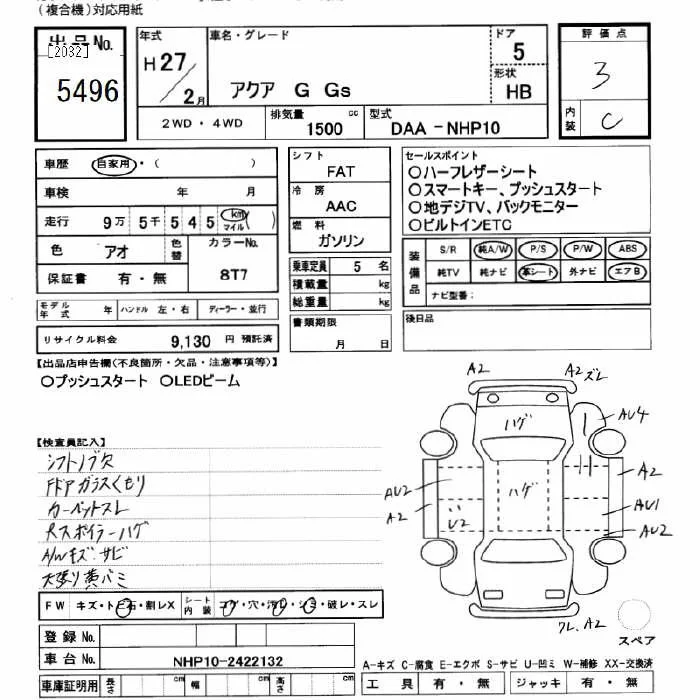 (複合機)対応用紙
出品No.
[2032]
5496
年式
H27/2月
車名・グレード
アクア G Gs
ドア
5
形状
HB
2WD・4WD
排気量 1500 cc
型式 DAA-NHP10
評価点
3
内装
C
車歴 自家用・( )
車検 年 月
走行 9万 5千 5 4 5 km/マイル ( )
色 アオ 色替
カラーNo.
8T7
保証書 有・無
モデル年式 年 ハンドル 左・右 ディーラー・並行
リサイクル料金 9,130 円 預託済
シフト
FAT
冷房
AAC
燃料
ガソリン
乗車定員 5 名
積載量 kg
総重量 kg
書類期限
月 日
セールスポイント
○ハーフレザーシート
○スマートキー、プッシュスタート
○地デジTV、バックモニター
○ビルトインETC
装備品
S/R 純A/W P/S P/W ABS
純TV 純ナビ 革シート 外ナビ エアB
ナビ型番:
後日品
【出品店申告欄(不良箇所・欠品・注意事項等)】
○プッシュスタート ○LEDビーム
【検査員記入】
シフトノブ欠
Fドアガラスくもり
カーペットスレ
Rスポイラーハゲ
A/Wキズ・サビ
天張り黄バミ
FW キズ・トビ石・割レX
シート内装 コゲ・穴・汚レ・シミ・破レ・スレ
登録No.
車台No. NHP10-2422132
車庫証明用 長さ cm 幅 cm 高さ cm
A2
A2 ズレ
ハゲ
AU4
A2
ハゲ
AU2
A2
U2
AU1
AU2
ワレ、A2
スペア
A-キズ C-腐食 E-エクボ S-サビ U-凹ミ W-補修 XX-交換済
工具 有・無 ジャッキ 有・無